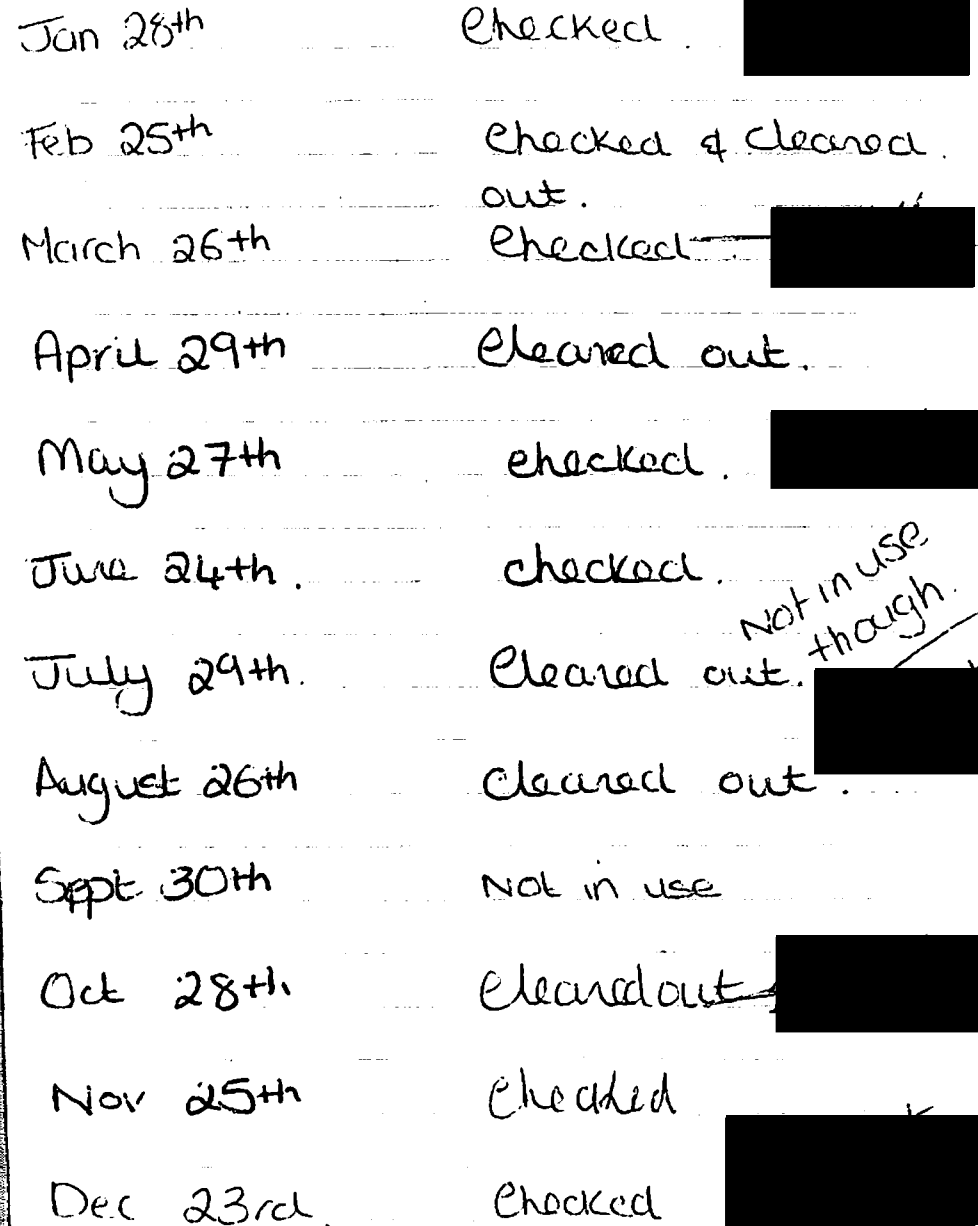 Jan 28th Checked.
Feb 25th Checked & Cleared
out.
March 26th Checked
April 29th Cleared out.
May 27th checked.
June 24th. checked.
Not in use
though.
July 29th. Cleared out.
August 26th Cleared out.
Sept 30th Not in use
Oct 28th. Cleared out
Nov 25th Checked
Dec 23rd. Checked